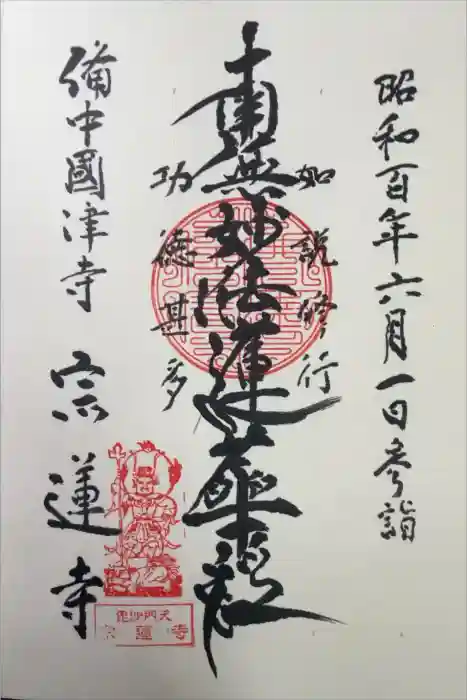 昭和百年六月一日参詣
如説修行
南無妙法蓮華経
功徳甚多
備中國津寺 宗蓮寺
毘沙門天
宗蓮寺